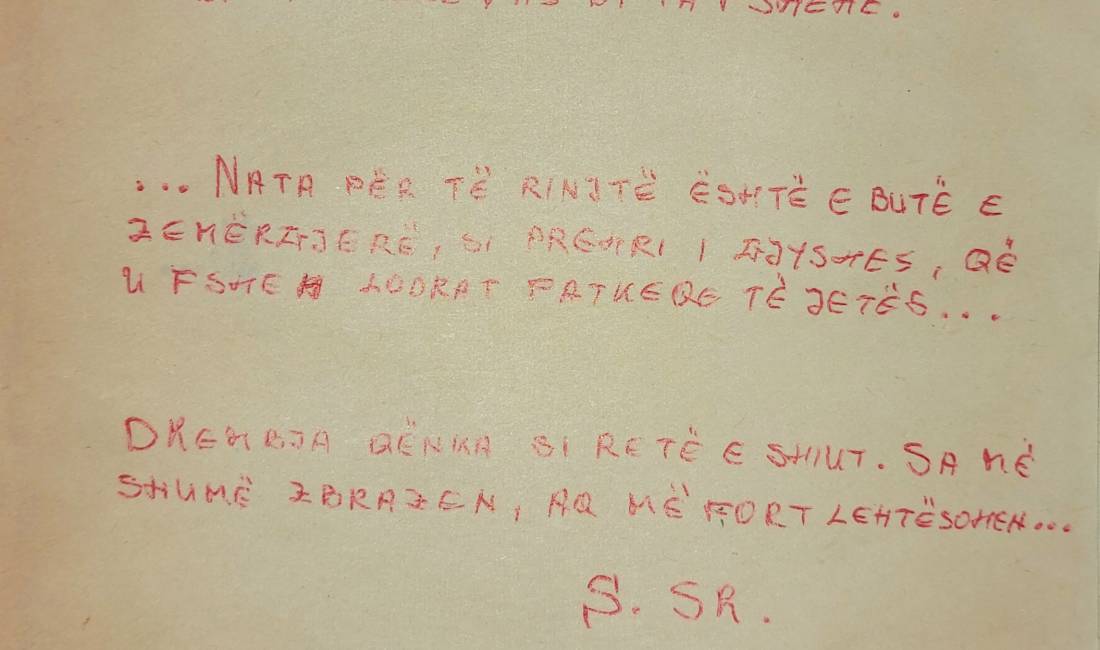 ... NATA PËR TË RINJTË ËSHTË E BUTË E
ZEMËRGJERË, SI PREHRI I GJYSHES, QË
U FSHEH LODRAT FATKEQE TË JETËS...
DHEMBJA QËNKA SI RETË E SHIUT. SA MË
SHUMË ZBRAZEN, AQ MË FORT LEHTËSOHEN...
S. SR.